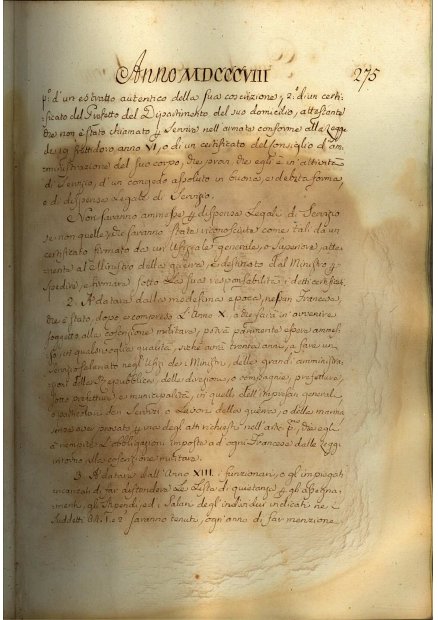 Anno MDCCCVIII 275
p.º d'un estratto autentico della sua coscrizione, 2.º di un certi-
ficato del Prefetto del Dipartimento del suo domicilio, attestante
che non è stato chiamato p servire nell'armata conforme alla Legge
de 19 Frittidoro anno VI, o di un certificato del Consiglio d'am
ministrazione del suo corpo, che provi che egli è in attività
di servizio, d'un congedo assoluto in buona, e debita forma,
o di dispensa legale di Servizio.
Non saranno ammesse p dispense Legali di Servizio
se non quelle, che saranno state riconosciute come tali da un
certificato firmato da un Uffiziale generale, o Superiore, atte-
nente al Ministro della guerra, e destinato dal Ministro p
spedire, e firmare sotto la sua responsabilità i detti certificati.
2. A datare dalla medesima epoca, nessun Francese,
che è stato, dopo e compreso l'Anno X, o che sarà in avvenire
soggetto alla coscrizione militare, potrà parimente essere ammes-
so, in qualsivoglia qualità, finchè avrà trenta anni, a fare un
servizio salariato negli Uffizi dei Ministri, delle grandi amministra-
zioni della Repubblica, delle divisioni, o compagnie, prefetture,
sotto prefetture e municipalità, in quelli dell'impresari generali,
o particolari dei Servizi o Lavori della guerra, o della marina
senza aver provato p uno degli atti richiesti nell'arte p.º, che egli
à riempite l'obbligazioni imposte ad ogni Francese dalle Leggi
intorno alla coscrizione militare.
3. A datare dall'Anno XIII. i funzionari, o gli impiegati
incaricati di far distendere le Liste di quietanze p gli assegna-
menti, gli stipendi, ed i salari degli individui indicati nei
suddetti Art. 1 e 2 saranno tenuti, ogni anno di far menzione